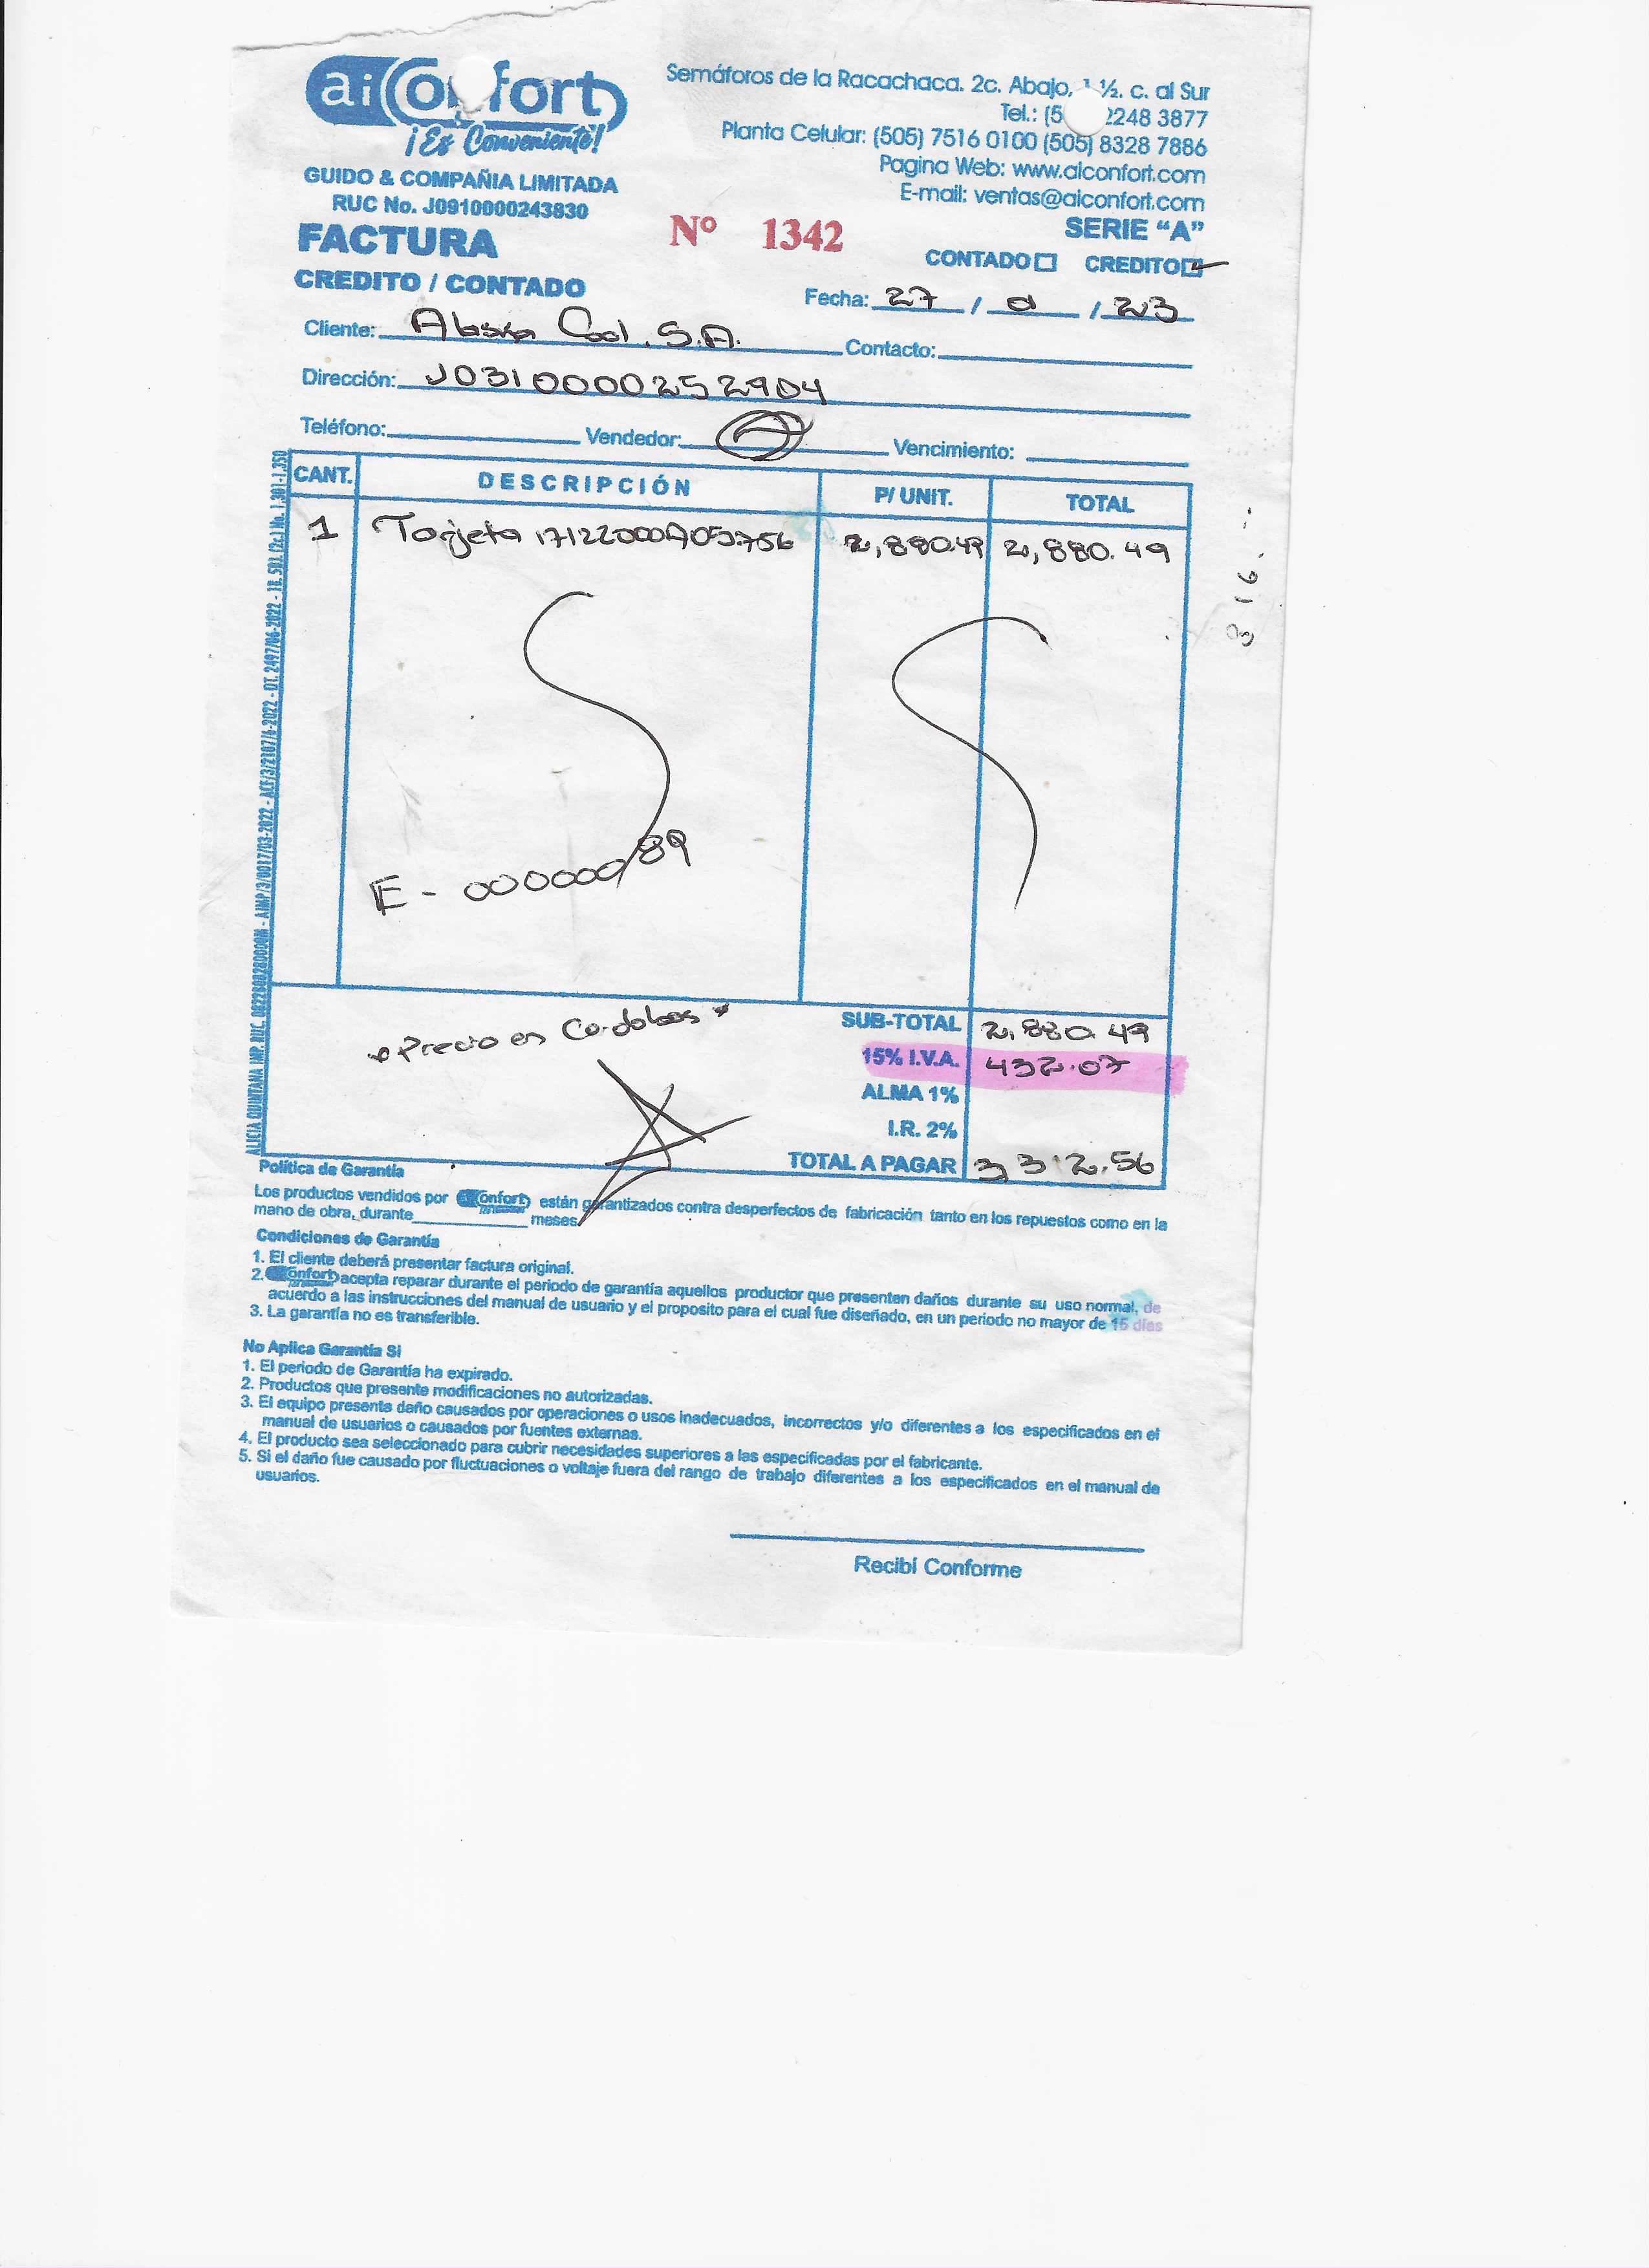 aiConfort
¡Es Conveniente!
GUIDO & COMPAÑIA LIMITADA
RUC No. J0910000243830
FACTURA
CREDITO / CONTADO
Semáforos de la Racachaca. 2c. Abajo, 1 ½. c. al Sur
Tel.: (5 2248 3877
Planta Celular: (505) 7516 0100 (505) 8328 7886
Pagina Web: www.aiconfort.com
E-mail: ventas@aiconfort.com
SERIE "A"
Nº 1342
CONTADO CREDITO
Fecha: 27 / / 23
Cliente: Cool. S.A. Contacto:
Dirección: J0310000252904
Teléfono: Vendedor: Vencimiento:
CANT. DESCRIPCIÓN P/ UNIT. TOTAL
1 Tarjeta 2,880.49 2,880.49
316.-
* Precio en Cordobas *
SUB-TOTAL 2,880.49
15% I.V.A. 432.07
ALMA 1%
I.R. 2%
TOTAL A PAGAR 3312.56
Política de Garantía
Los productos vendidos por aiConfort están garantizados contra desperfectos de fabricación tanto en los repuestos como en la
mano de obra, durante meses
Condiciones de Garantía
1. El cliente deberá presentar factura original.
2. aiConfort acepta reparar durante el periodo de garantía aquellos productor que presenten daños durante su uso normal, de
acuerdo a las instrucciones del manual de usuario y el proposito para el cual fue diseñado, en un periodo no mayor de 15 días
3. La garantía no es transferible.
No Aplica Garantía Si
1. El periodo de Garantía ha expirado.
2. Productos que presente modificaciones no autorizadas.
3. El equipo presenta daño causados por operaciones o usos inadecuados, incorrectos y/o diferentes a los especificados en el
manual de usuarios o causados por fuentes externas.
4. El producto sea seleccionado para cubrir necesidades superiores a las especificadas por el fabricante.
5. Si el daño fue causado por fluctuaciones o voltaje fuera del rango de trabajo diferentes a los especificados en el manual de
usuarios.
Recibí Conforme